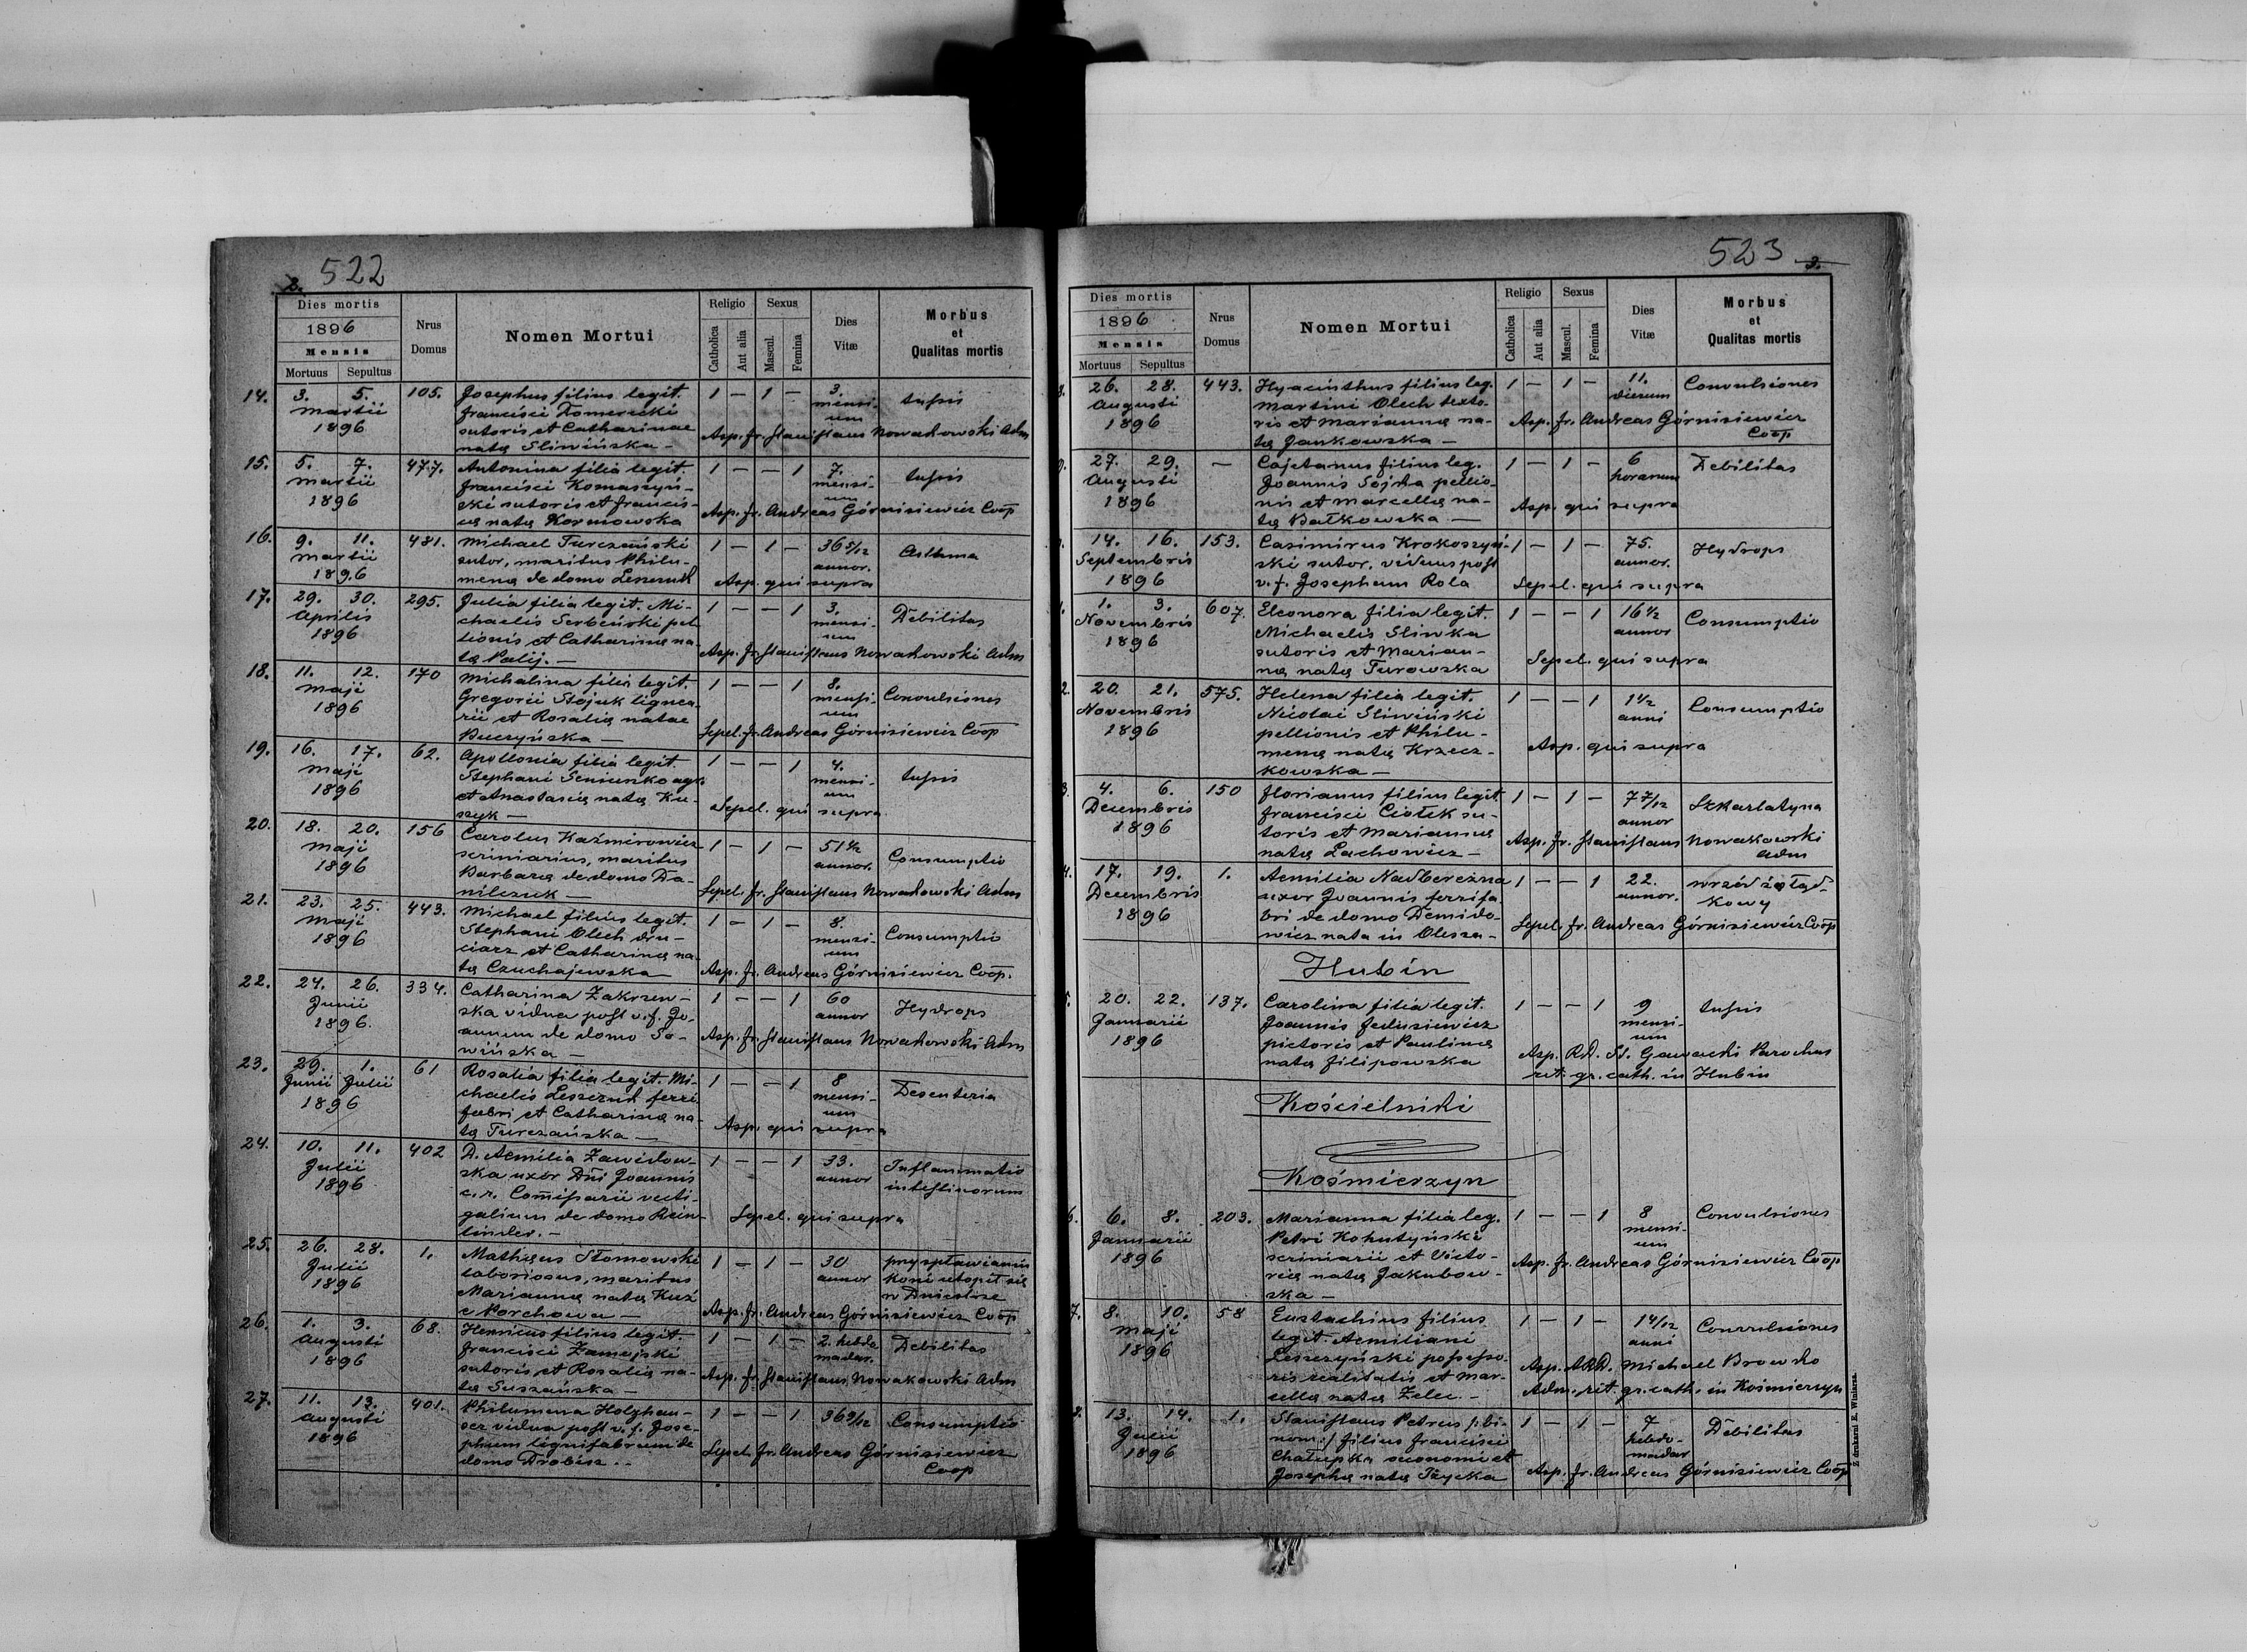 2. 522
Dies mortis
1896
Mensis
Mortuus Sepultus
Nrus Domus
Nomen Mortui
Religio
Catholica
Aut alia
Sexus
Mascul.
Femina
Dies Vitæ
Morbus et Qualitas mortis
14. 3. 5. 105. Josephus filius legit. 1 — 1 — 3. tussis
Martii Francisci Domerecki mensi-
1896 sutoris et Catharinae um
natæ Sliwińska — Asp. fr. Stanislaus Nowakowski Adm
15. 5. 7. 477. Antonina filia legit. 1 — — 1 7. tussis
Martii Francisci Komaszyń- mensi-
1896 ski sutoris et Francis- um
cæ natæ Kormowska Asp. fr. Andreas Górnisiewicz Coop
16. 9. 11. 481. Michael Turczański 1 — 1 — 36 5/12 Asthma
Martii sutor, maritus Philu- annor.
1896 menæ de domo Leszczuk Asp. qui supra
17. 29. 30. 295. Julia filia legit. Mi- 1 — — 1 3. Debilitas
Aprilis chaelis Serbeński pel- mensi-
1896 lionis et Catharinæ na- um
tæ Palij. — Asp. fr. Stanislaus Nowakowski Adm
18. 11. 12. 170 Michalina filia legit. 1 — — 1 8. Convulsiones
Maji Gregorii Stojuk lignea- mensi-
1896 rii et Rosaliæ natae um
Buczyńska — Sepel. fr. Andreas Górnisiewicz Coop
19. 16. 17. 62. Apollonia filia legit. 1 — — 1 4. tussis
Maji Stephani Seniuszko agr. mensi-
1896 et Anastasiæ natæ Ku- um
szyk — Sepel. qui supra
20. 18. 20. 156 Carolus Kaźmirowicz 1 — 1 — 51 1/2 Consumptio
Maji scriniarius, maritus annor.
1896 Barbaræ de domo Da-
nilczuk — Sepel. fr. Stanislaus Nowakowski Adm
21. 23. 25. 443. Michael filius legit. 1 — 1 — 8. Consumptio
Maji Stephani Olech dru- mensi-
1896 ciarz et Catharinæ na- um
tæ Czuchajewska — Asp. fr. Andreas Górnisiewicz Coop.
22. 24. 26. 334. Catharina Zakrzew- 1 — — 1 60 Hydrops
Junii ska vidua post v. f. Jo- annor
1896. annem de domo So-
wińska — Asp. fr. Stanislaus Nowakowski Adm
23. 29. 1. 61 Rosalia filia legit. Mi- 1 — — 1 8 Desenteria
Junii Julii chaelis Leszczuk ferri- mensi-
1896 fabri et Catharinæ na- um
tæ Turczańska — Asp. qui supra
24. 10. 11. 402 D. Aemilia Zawidow- 1 — — 1 33. Inflammatio
Julii ska uxor Dni Joannis annor intestinorum
1896 c. r. Comissarii vecti-
galium de domo Rein-
linder. — Sepel. qui supra
25. 26. 28. 1. Mathæus Słomowski 1 — 1 — 30 przy spławianiu
Julii laboriosus, maritus annor koni utopił się
1896 Mariannæ natæ Kuź w Dniestrze
e Porchowa — Asp. fr. Andreas Górnisiewicz Coop
26. 1. 3. 68. Henricus filius legit. 1 — 1 — 2. hebdo Debilitas
Augusti Francisci Zamejski madar.
1896 sutoris et Rosaliæ na-
tæ Suszańska — Asp. fr. Stanislaus Nowakowski Adm
27. 11. 13. 401. Philumena Holzhau- 1 — — 1 36 9/12 Consumptio
Augusti ser vidua post v. f. Jose-
1896 phum lignifabrum de Sepel. fr. Andreas Górnisiewicz
domo Drobisz. - Coop
523 3.
Dies mortis
1896
Mensis
Mortuus Sepultus
Nrus Domus
Nomen Mortui
Religio
Catholica
Aut alia
Sexus
Mascul.
Femina
Dies Vitæ
Morbus et Qualitas mortis
26. 28. 443. Hyacinthus filius leg. 1 — 1 — 11. Convulsiones
Augusti Martini Olech texto- dierum
1896 ris et Mariannæ na- Asp. fr. Andreas Górnisiewicz
tæ Jankowska — Coop
27. 29. — Cajetanus filius leg. 1 — 1 — 6 Debilitas
Augusti Joannis Sojka pellio- horarum
1896 nis et Marcellæ na- Asp. qui supra
tæ Bałkowska —
14. 16. 153. Casimirus Krokoszyń- 1 — 1 — 75. Hydrops
Septembris ski sutor, viduus post annor.
1896 v. f. Josepham Rola Sepel. qui supra
1. 3. 607. Eleonora filia legit. 1 — — 1 16 1/2 Consumptio
Novembris Michaelis Sliwka annor
1896 sutoris et Marian-
næ natæ Turowska Sepel. qui supra
20. 21. 575. Helena filia legit. 1 — — 1 1 1/2 Consumptio
Novembris Nicolai Sliwiński anni
1896 pellionis et Philu-
menæ natæ Krzecz- Asp. qui supra
kowska —
4. 6. 150 Florianus filius legit. 1 — 1 — 7 7/12 Szkarlatyna
Decembris Francisci Ciołek su- annor
1896 toris et Mariannæ Asp. fr. Stanislaus Nowakowski
natæ Lachowicz — Adm
17. 19. 1. Aemilia Nadberezna 1 — — 1 22. wrzód żołąd-
Decembris uxor Joannis ferrifa- annor. kowy
1896 bri de domo Demido-
wicz nata in Olesza - Sepel. fr. Andreas Górnisiewicz Coop
Hubin
20. 22. 137. Carolina filia legit. 1 — — 1 9 tussis
Januarii Joannis Fedusiewicz mensi-
1896 pictoris et Paulinæ um
natæ Filipowska Asp. RD. St. Gawacki Parochus
rit. gr. cath. in Hubin
Kościelniki
Kośmierzyn
6. 6. 8. 203. Marianna filia leg. 1 — — 1 8 Convulsiones
Januarii Petri Kohutyński mensi-
1896 scriniarii et Victo- um
riæ natæ Jakubow- Asp. fr. Andreas Górnisiewicz Coop
ska —
7. 8. 10. 58 Eustachius filius 1 — 1 — 1 4/12 Convulsiones
Maji legit. Aemiliani anni
1896 Leszczyński possesso- Asp. ARD. Michael Browko
ris realitatis et Mar- Adm. rit. gr. cath. in Kośmierzyn
cellæ natæ Zelec. —
13. 14. 1. Stanislaus Petrus /:bi- 1 — 1 — 7 Debilitas
Julii nom:/ filius Francisci hebdo-
1896 Chałupka œconomi et madar
Josephæ natæ Tycka Asp. fr. Andreas Górnisiewicz Coop
Z drukarni E. Winiarza.